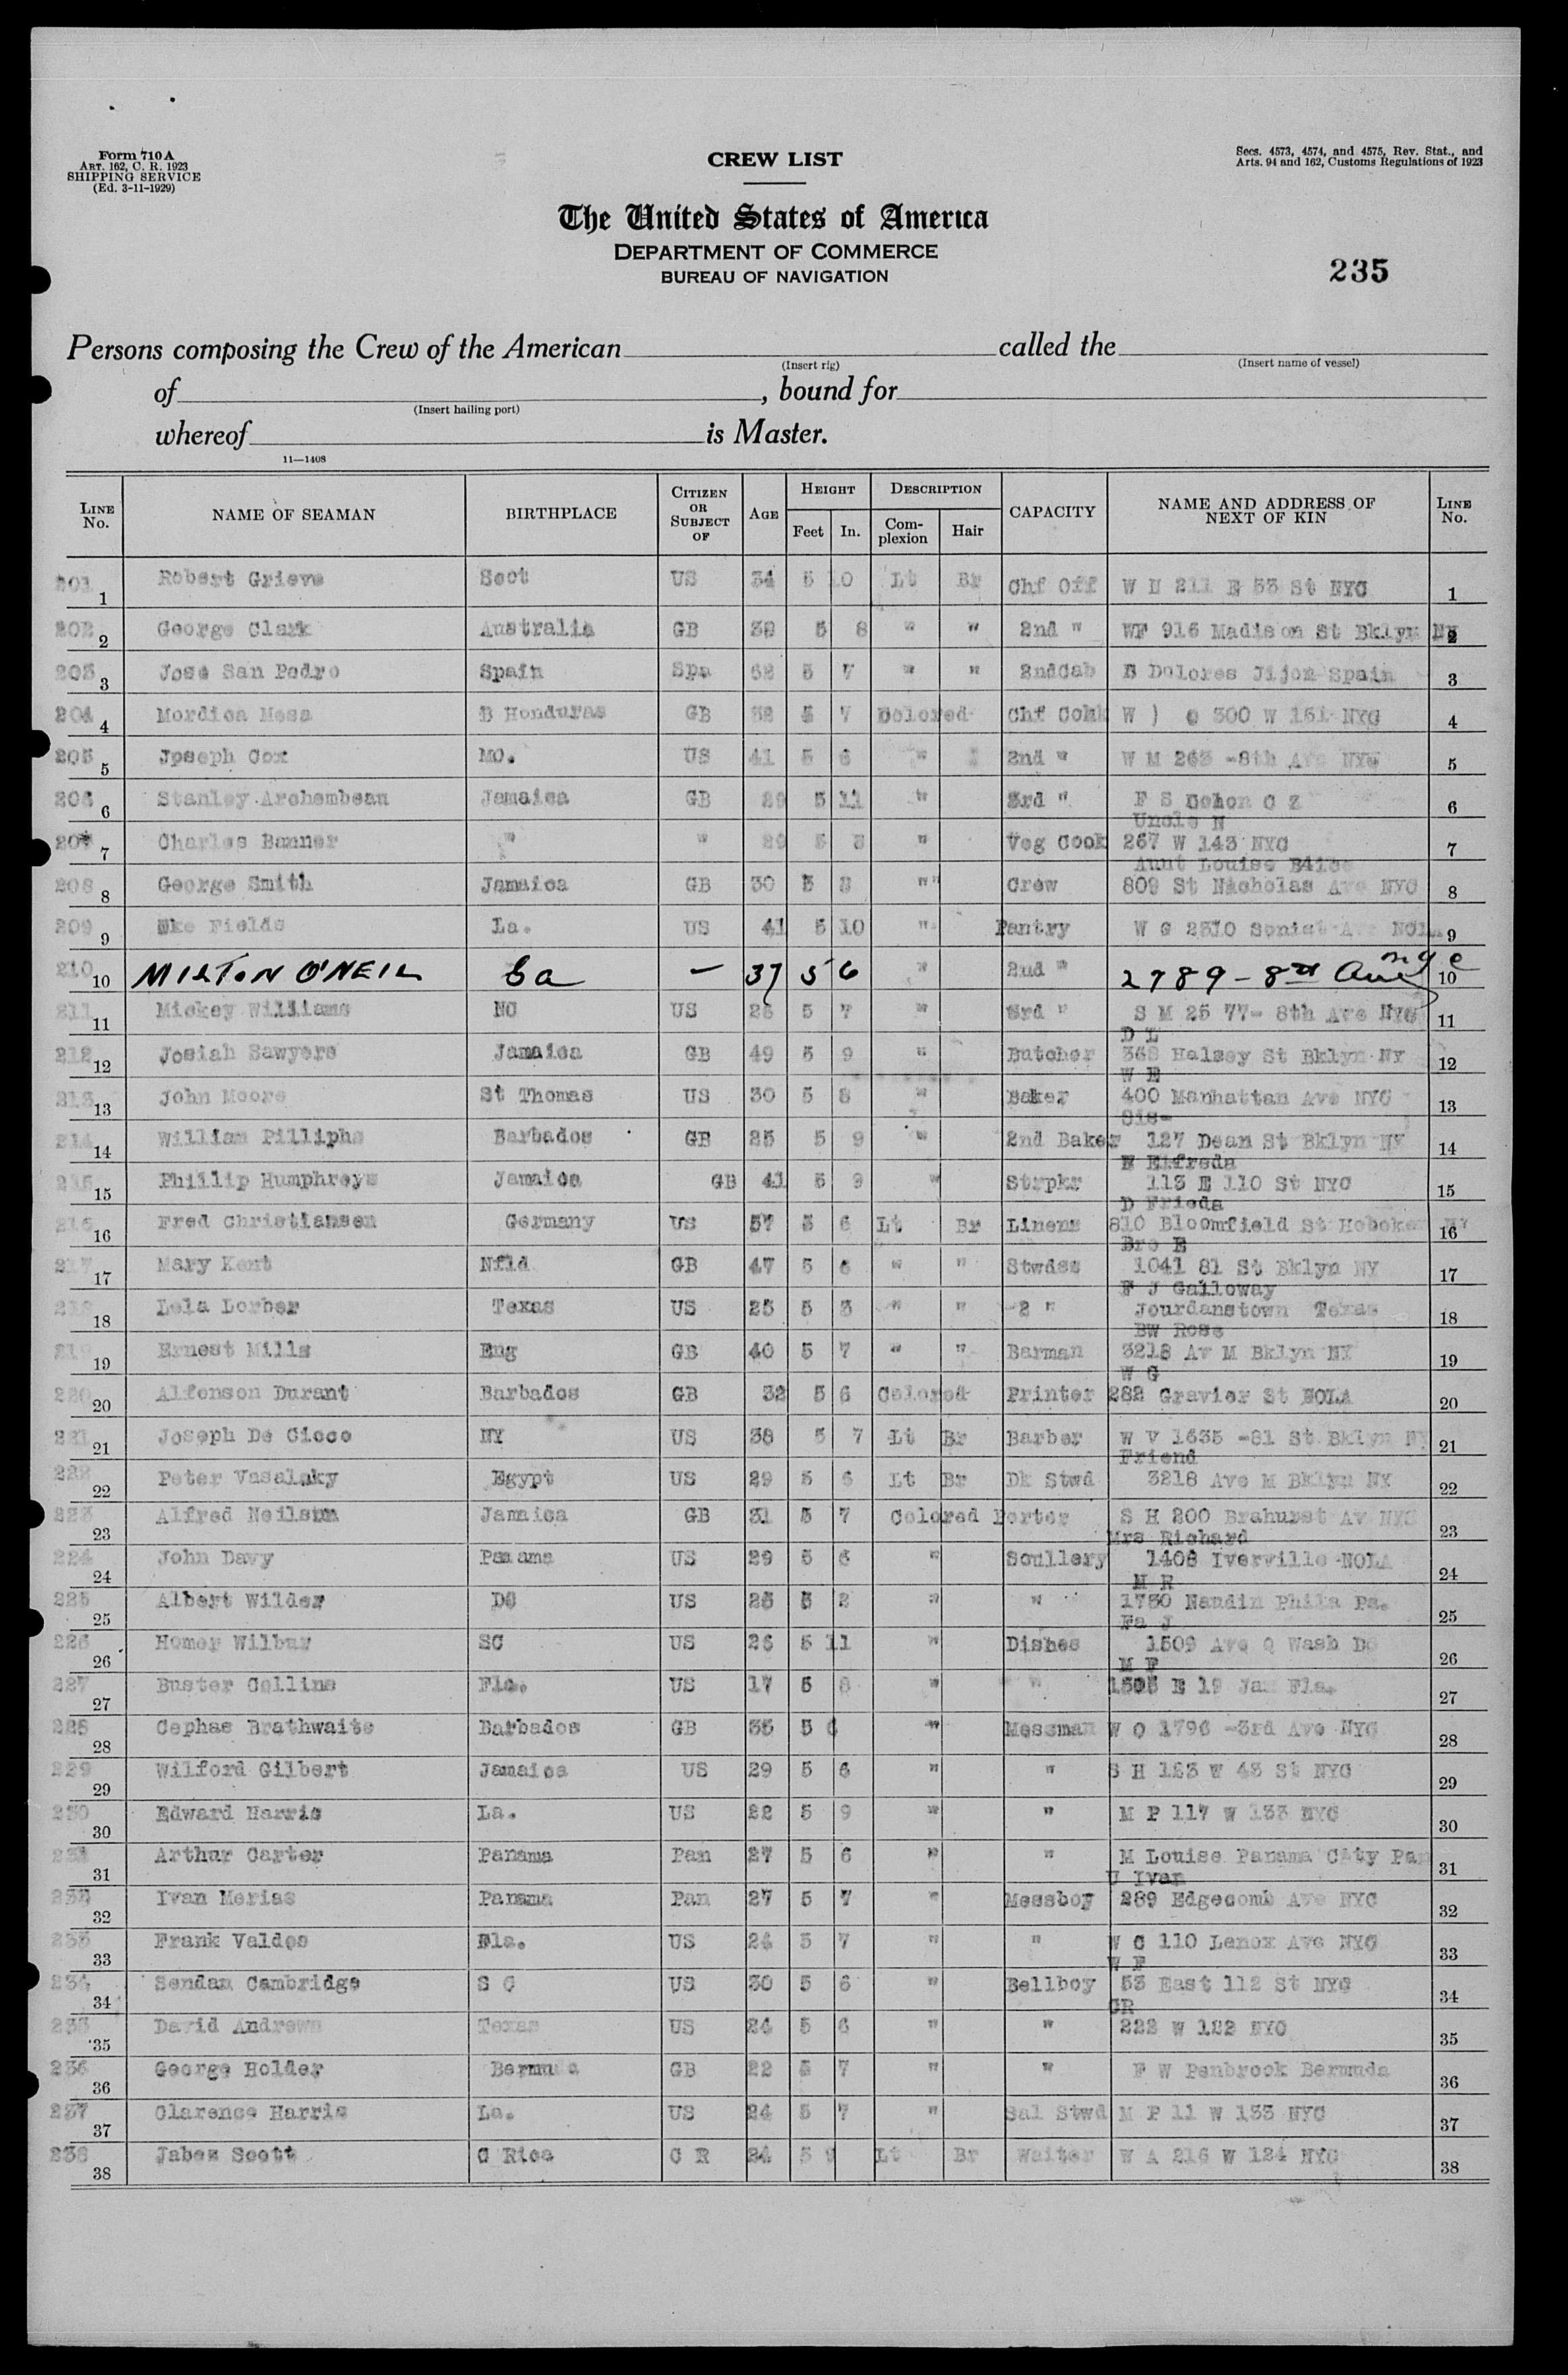 Form 710A
ART. 162, C. R. 1923
SHIPPING SERVICE
(Ed. 3-11-1929)
CREW LIST
Secs. 4573, 4574, and 4575, Rev. Stat., and
Arts. 94 and 162, Customs Regulations of 1923
The United States of America
DEPARTMENT OF COMMERCE
BUREAU OF NAVIGATION
235
Persons composing the Crew of the American called the
(Insert rig) (Insert name of vessel)
of , bound for
(Insert hailing port)
whereof is Master.
11—1408
LINE No. NAME OF SEAMAN BIRTHPLACE CITIZEN OR SUBJECT OF AGE HEIGHT Feet In. DESCRIPTION Complexion Hair CAPACITY NAME AND ADDRESS OF NEXT OF KIN LINE No.
201 1 Robert Grieve Scot US 34 5 10 Lt Br Chf Off W H 211 E 53 St NYC 1
202 2 George Clark Australia GB 5 8 " " 2nd " WF 916 Madison St Bklyn NY 2
203 3 Jose San Pedro Spain Spa 5 7 " " 2ndCab Dolores Jijon Spain 3
204 4 Mordica Mesa B Honduras GB 5 7 Colored Chf W ) 300 W 151 NYC 4
205 5 Jpseph Cox MO. US 41 5 6 " 2nd " W M 263 -8th Ave 5
206 6 Stanley Archembeau Jamaica GB 29 5 11 " 3rd " F S C Z 6
Uncle N
207 7 Charles Banner " " 29 5 " Veg Cook 267 W 143 NYC 7
Aunt Louise
208 8 George Smith Jamaica GB 30 5 8 "" Crew 809 St Nicholas Ave NYC 8
209 9 Fields La. US 41 5 10 " Pantry W G 2310 NOLA 9
210 10 MILTON O'NEIL Ga — 37 5 6 " 2nd " 2789 - 8th Ave nyc 10
211 11 Mickey Williams NC US 26 5 7 " 3rd " S M 25 77- 8th Ave NYC 11
D L
212 12 Josiah Sawyers Jamaica GB 49 5 9 " Butcher 368 Halsey St Bklyn Ny 12
W E
213 13 John Moore St Thomas US 30 5 8 " Baker 400 Manhattan Ave NYC 13
Sis-
214 14 William Pilliphs Barbados GB 25 5 9 " 2nd Baker 127 Dean St Bklyn NY 14
Elfreda
215 15 Phillip Humphreys Jamaica GB 41 5 9 " Strpkr 113 E 110 St NYC 15
D Frieda
216 16 Fred Christiansen Germany US 57 5 6 Lt Br Linens 810 Bloomfield St Hoboken 16
Bro E
217 17 Mary Kent Nfld GB 47 5 6 " " Stwdss 1041 81 St Bklyn NY 17
F J Galloway
218 18 Lela Lorber Texas US 25 5 3 " " -2 " Jourdanstown Texas 18
BW Rose
219 19 Ernest Mills Eng GB 40 5 7 " " Barman 3218 Av M Bklyn NY 19
W G
220 20 Alfonson Durant Barbados GB 32 5 6 Colored Printer 282 Gravier St NOLA 20
221 21 Joseph De Cicco NY US 38 5 7 Lt Br Barber W V 1635 -81 St Bklyn NY 21
Friend
222 22 Peter Vasalaky Egypt US 29 5 6 Lt Br Dk Stwd 3218 Ave M Bklyn NY 22
223 23 Alfred Jamaica GB 31 5 7 Colored Porter S H 200 Brahurst Av NYC 23
Mrs Richard
224 24 John Davy Panama US 29 5 6 " Scullery 1408 Iverville NOLA 24
M R
225 25 Albert Wilder DC US 25 5 2 " " 1730 Naudin Phila Pa. 25
Fa J
226 26 Homer Wilbur SC US 26 5 11 " Dishes 1509 Ave Q Wash DC 26
M F
227 27 Buster Collins Flo. US 17 5 8 " " E 19 Jax Fla. 27
228 28 Cephas Brathwaite Barbados GB 35 5 6 " Messman W O 1796 -3rd Ave NYC 28
229 29 Wilford Gilbert Jamaica US 29 5 6 " " S H 123 W 43 St NYC 29
230 30 Edward Harris La. US 22 5 9 " " M P 117 W 133 NYC 30
231 31 Arthur Carter Panama Pan 27 5 6 " " M Louise Panama City Pan 31
U Ivan
232 32 Ivan Merias Panama Pan 27 5 7 " Messboy 289 Edgecomb Ave NYC 32
233 33 Frank Valdes Fla. US 24 5 7 " " W C 110 Lenox Ave NYC 33
W F
234 34 Sendam Cambridge S C US 30 5 6 " Bellboy 53 East 112 St NYC 34
GR
235 35 David Andrews Texas US 24 5 6 " " 222 W 122 NYC 35
236 36 George Holder Bermuda GB 22 5 7 " " F W Penbrook Bermuda 36
237 37 Clarence Harris La. US 24 5 7 " Sal Stwd M P 11 W 133 NYC 37
238 38 Jabez Scott C Rica C R 24 5 9 Lt Br Waiter W A 216 W 124 NYC 38